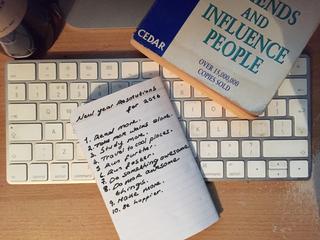 FRIENDS
AND
INFLUENCE
PEOPLE
CEDAR
OVER 15,000,000
COPIES SOLD
New Year Resolutions
for 2016
1. Read more.
2. more alone.
3. Study more.
4. Travel to cool places.
5. Run further.
6. Run faster.
7. Do something awesome
8. Do more awesome
things.
9. Make more.
10. Be happier.